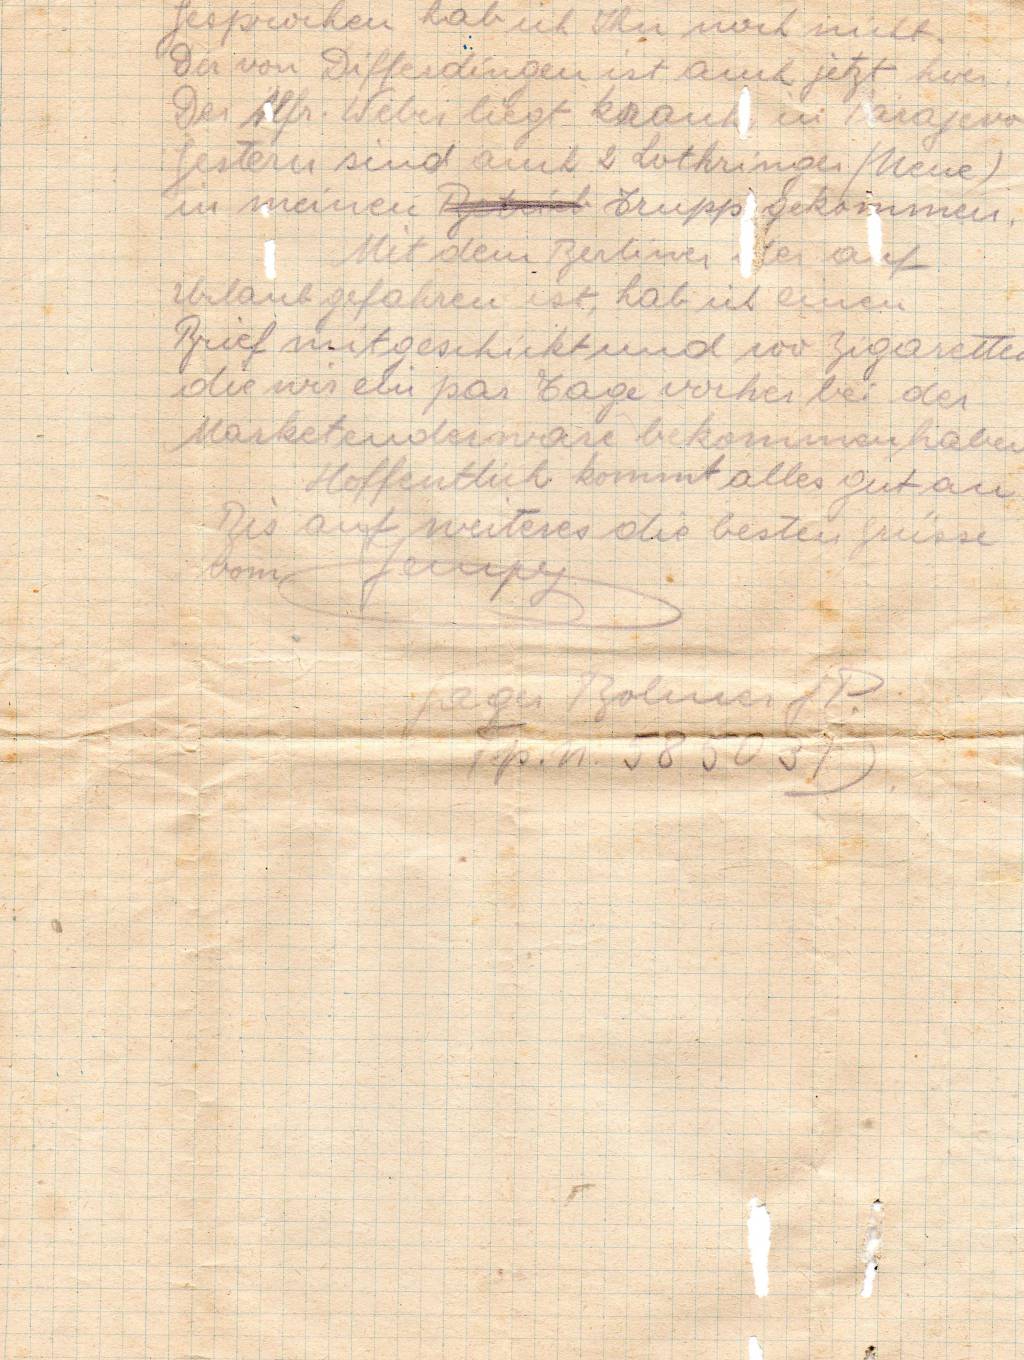 gesprochen hab ich Ihn noch nicht.
Der von Differdingen ist auch jetzt hier.
Der Alfr. Weber liegt krank in Sarajevo
gestern sind auch 2 Lothringer (Neue)
in meinen Trupp gekommen.
Mit dem Berliner der auf
Urlaub gefahren ist, hab ich einen
Brief mitgeschickt und 100 Zigaretten
die wir ein par Tage vorher bei der
Marketenderware bekommen haben
Hoffentlich kommt alles gut an
Bis auf weiteres die besten Grüsse
vom Jempy
Jäger Bolmer J P.
Fp.n. 58503 D.